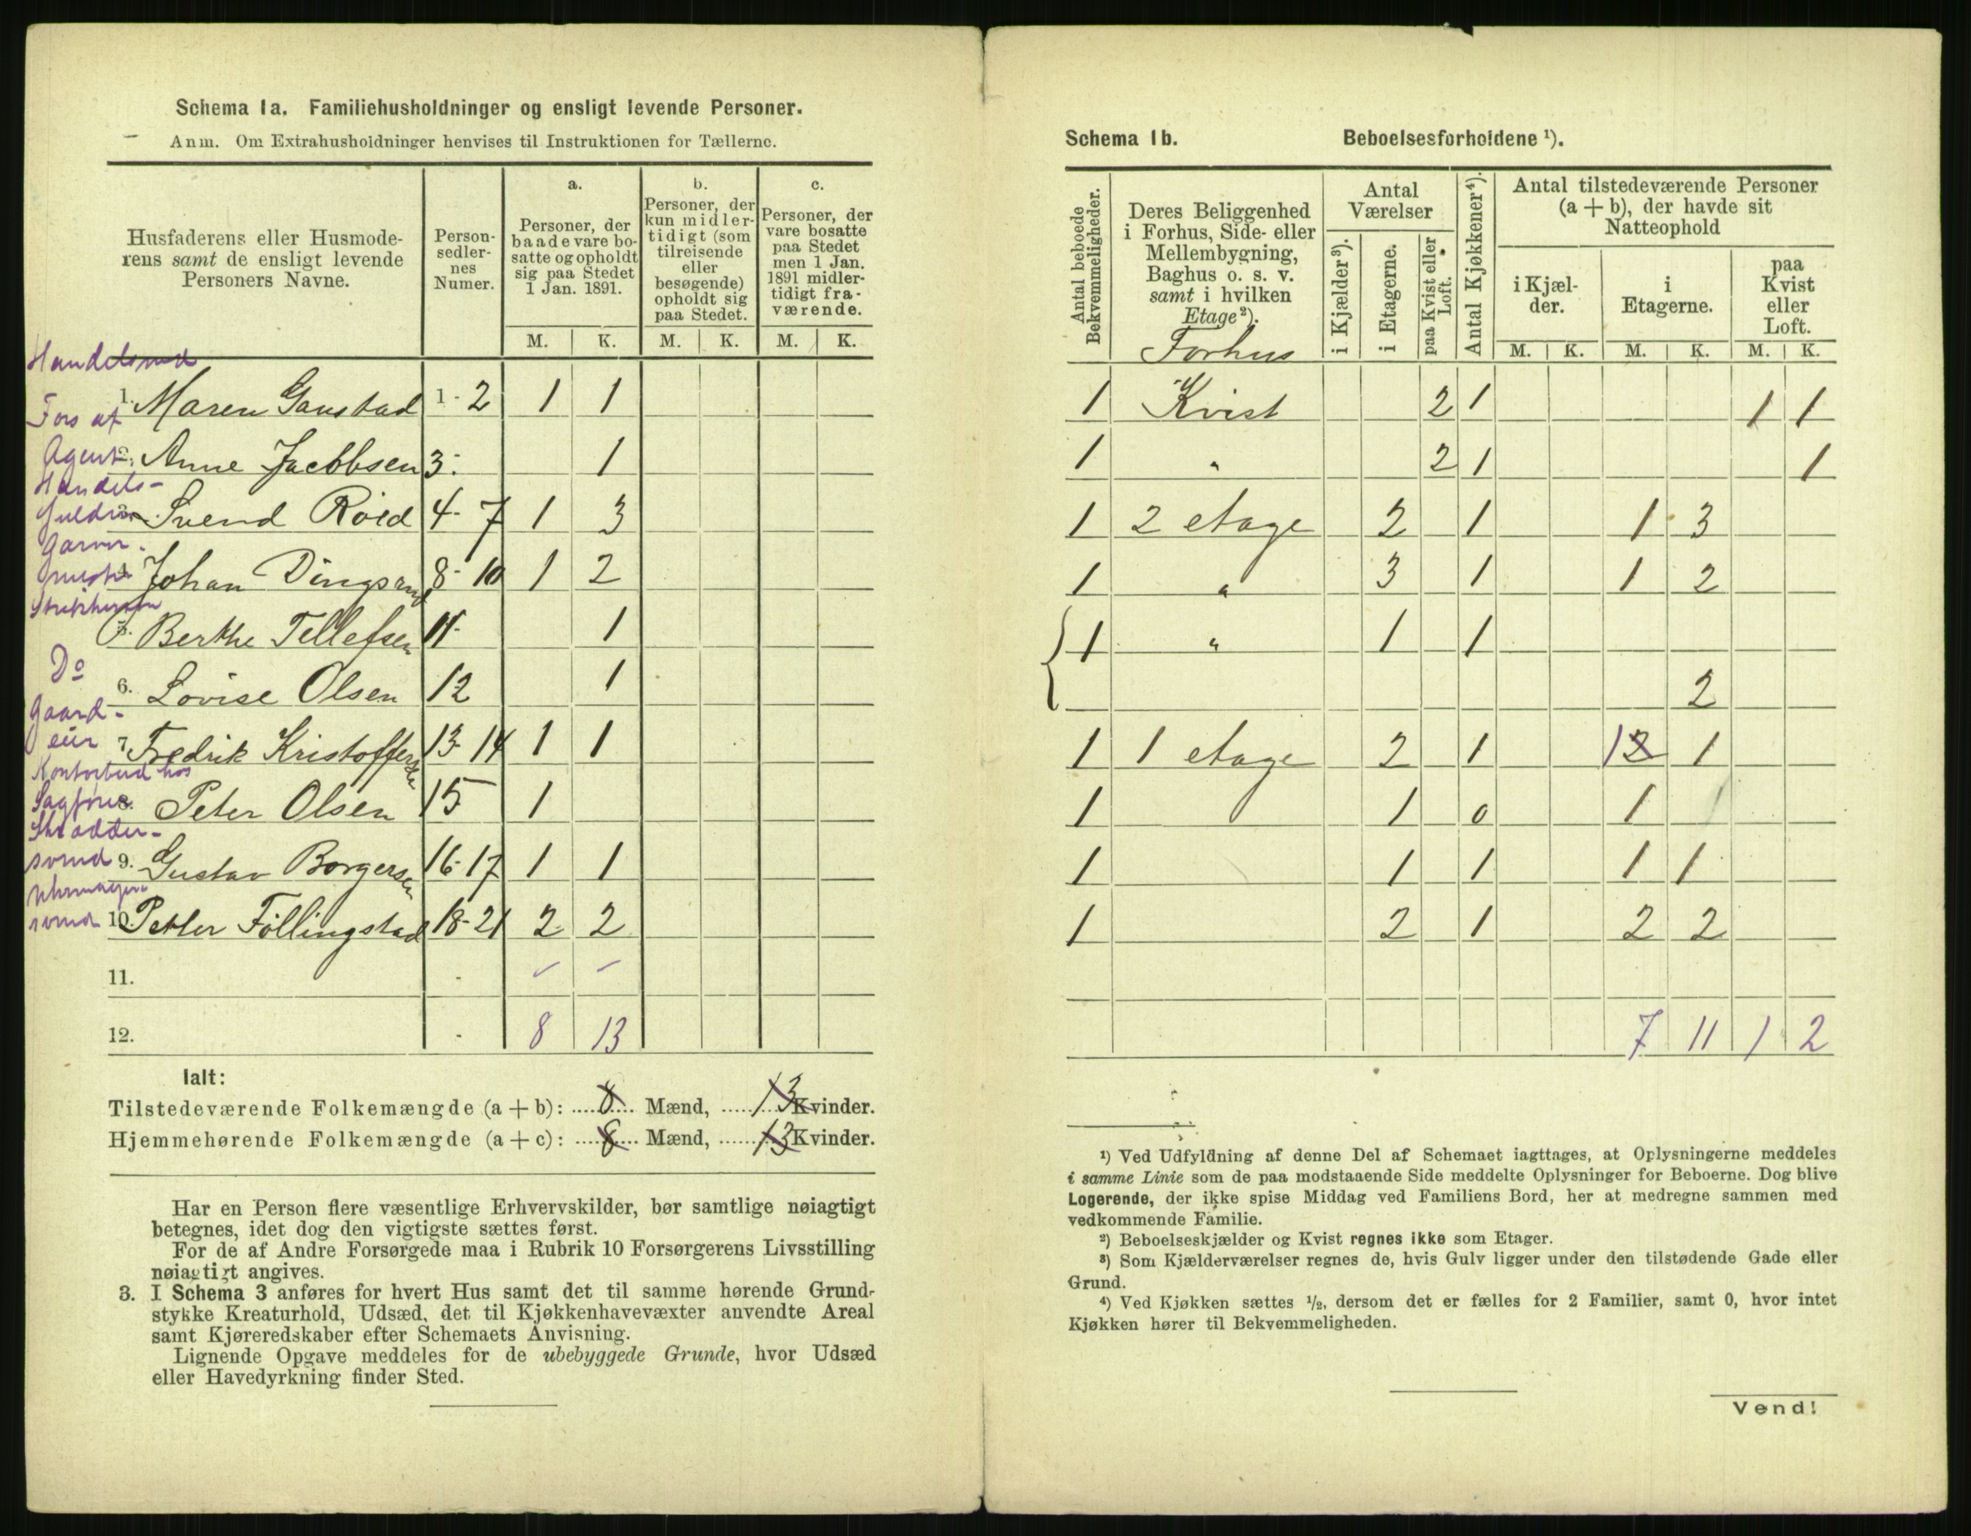 Schema 1a. Familiehusholdninger og ensligt levende Personer.
Anm. Om Extrahusholdninger henvises til Instruktionen for Tællerne.
Husfaderens eller Husmode-
rens samt de ensligt levende
Personers Navne.
Person-
sedler-
nes
Numer.
a.
Personer, der
baade vare bo-
satte og opholdt
sig paa Stedet
1 Jan. 1891.
b.
Personer, der
kun midler-
tidigt (som
tilreisende
eller
besøgende)
opholdt sig
paa Stedet.
c.
Personer, der
vare bosatte
paa Stedet
men 1 Jan.
1891 midler-
tidigt fra-
værende.
M. K. M. K. M. K.
1. Maren Ganstad 1-2 1 1
Fors af
2. Anne Jacobsen 3. 1
Agent.
Handels-
3. Svend Röed 4-7 1 3
Garver
4. Johan Dingsand 8-10 1 2
5. Berthe Tellefsen 11 1
Do
6. Lovise Olsen 12 1
Gaard-
eier
7. Fredrik Kristoffersen 13-14 1 1
Kontorbud hos
Sagfører
8. Peter Olsen 15 1
Skrædder-
svend
9. Gustav Borgersen 16-17 1 1
svend
10. Petter Föllingstad 18-21 2 2
11.
12. 8 13
Ialt:
Tilstedeværende Folkemængde (a + b): 8 Mænd, 13 Kvinder.
Hjemmehørende Folkemængde (a + c): 8 Mænd, 13 Kvinder.
Har en Person flere væsentlige Erhvervskilder, bør samtlige nøiagtigt
betegnes, idet dog den vigtigste sættes først.
For de af Andre Forsørgede maa i Rubrik 10 Forsørgerens Livsstilling
nøiagtigt angives.
3. I Schema 3 anføres for hvert Hus samt det til samme hørende Grund-
stykke Kreaturhold, Udsæd, det til Kjøkkenhavevæxter anvendte Areal
samt Kjøreredskaber efter Schemaets Anvisning.
Lignende Opgave meddeles for de ubebyggede Grunde, hvor Udsæd
eller Havedyrkning finder Sted.
Schema 1b. Beboelsesforholdene ¹).
Antal beboede
Bekvemmeligheder.
Deres Beliggenhed
i Forhus, Side- eller
Mellembygning,
Baghus o. s. v.
samt i hvilken
Etage²).
Forhus
Antal
Værelser
i Kjælder³).
i Etagerne.
paa Kvist eller
Loft.
Antal Kjøkkener⁴).
Antal tilstedeværende Personer
(a + b), der havde sit
Natteophold
i Kjæl-
der.
i
Etagerne.
paa
Kvist
eller
Loft.
M. K. M. K. M. K.
1 Kvist 2 1 1 1
1 " 2 1 1
1 2 etage 2 1 1 3
1 " 3 1 1 2
1 " 1 1
2
1 1 etage 2 1 1 2 1
1 1 0 1 1
1 1 1 1 1
1 2 1 2 2
7 11 1 2
¹) Ved Udfyldning af denne Del af Schemaet iagttages, at Oplysningerne meddeles
i samme Linie som de paa modstaaende Side meddelte Oplysninger for Beboerne. Dog blive
Logerende, der ikke spise Middag ved Familiens Bord, her at medregne sammen med
vedkommende Familie.
²) Beboelseskjælder og Kvist regnes ikke som Etager.
³) Som Kjælderværelser regnes de, hvis Gulv ligger under den tilstødende Gade eller
Grund.
⁴) Ved Kjøkken sættes ½, dersom det er fælles for 2 Familier, samt 0, hvor intet
Kjøkken hører til Bekvemmeligheden.
Vend!